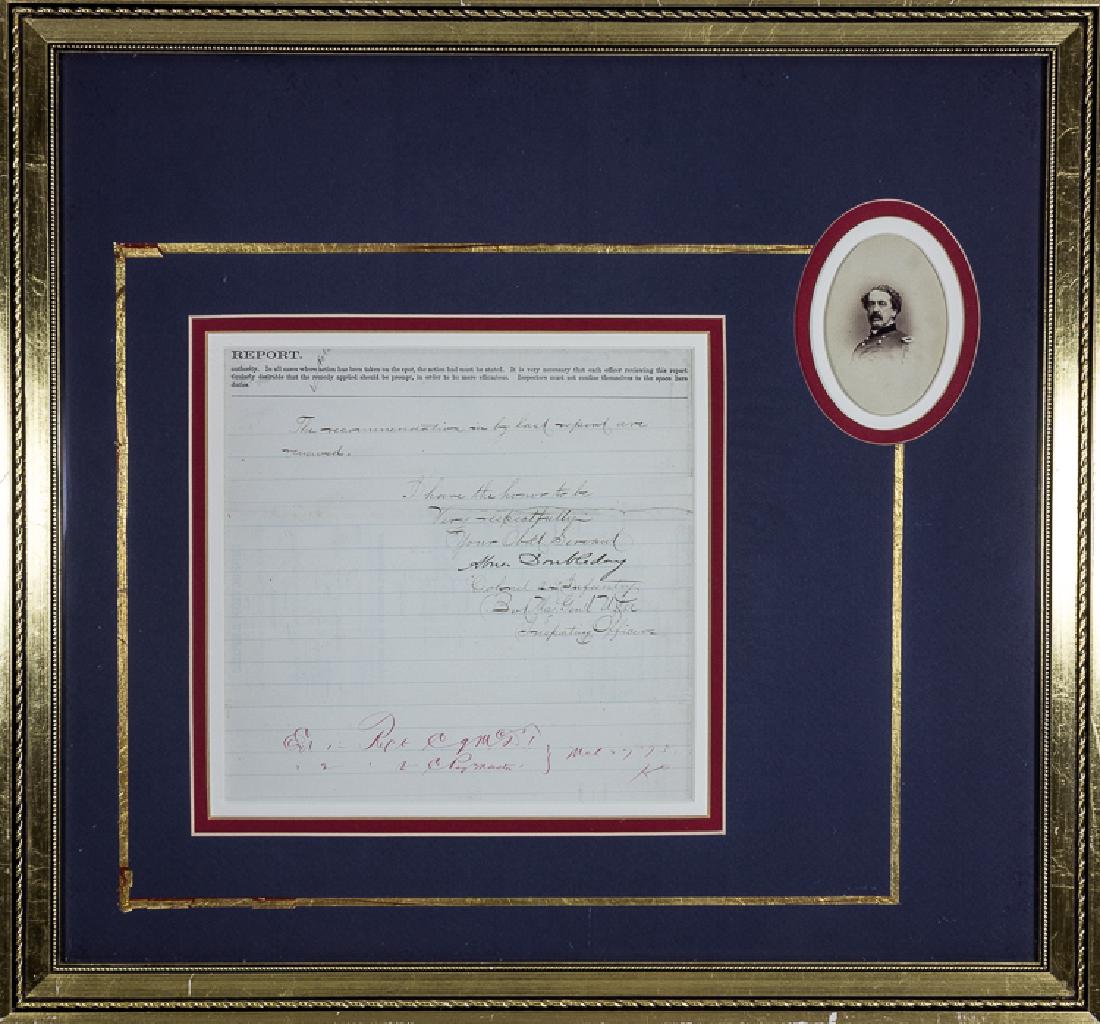 REPORT.
authority. In all cases where action has been taken on the spot, the action had must be stated. It is very necessary that each officer reviewing this report
desirable that the remedy applied should be prompt, in order to be more efficacious. Inspectors must not confine themselves to the space here
The recommendation in by last report are
renewed.
I have the honor to be
Very respectfully
Your Obdt Servant
Abner Doubleday
Colonel 24 Infantry
Bvt Maj Genl USA
Inspecting Officer